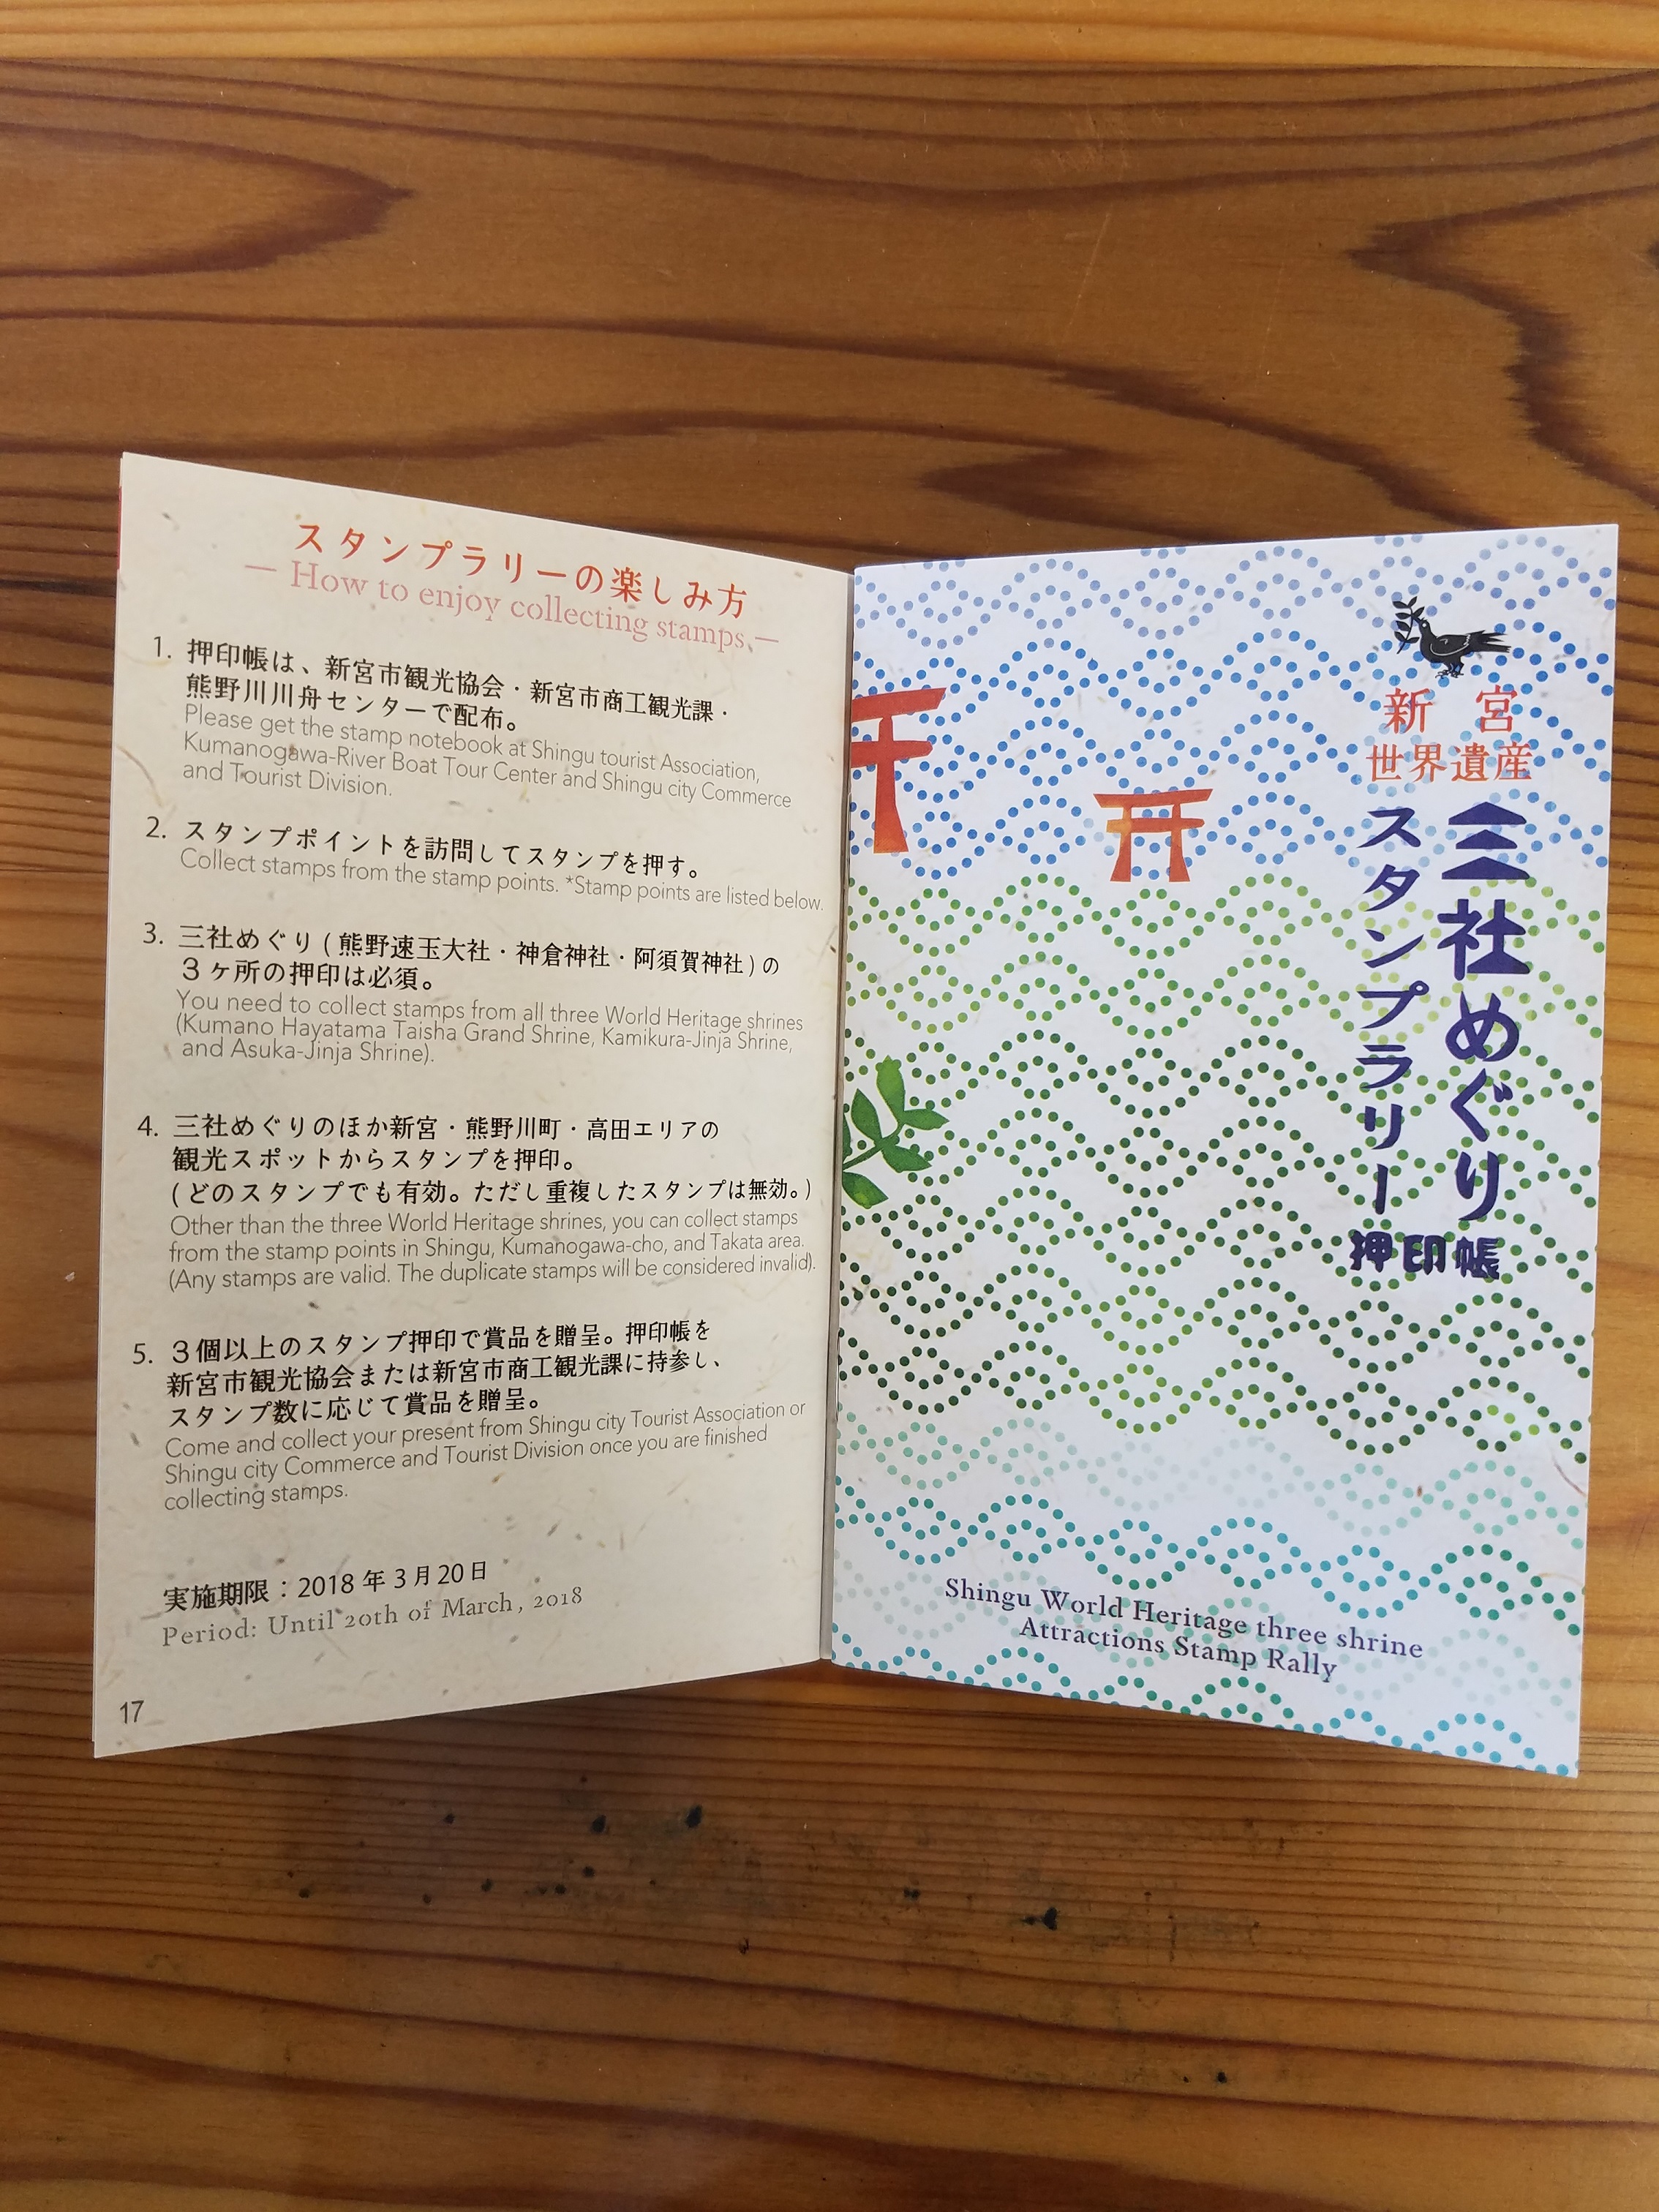 スタンプラリーの楽しみ方
— How to enjoy collecting stamps. —
1. 押印帳は、新宮市観光協会・新宮市商工観光課・
熊野川川舟センターで配布。
Please get the stamp notebook at Shingu tourist Association,
Kumanogawa-River Boat Tour Center and Shingu city Commerce
and Tourist Division.
2. スタンプポイントを訪問してスタンプを押す。
Collect stamps from the stamp points. *Stamp points are listed below.
3. 三社めぐり(熊野速玉大社・神倉神社・阿須賀神社)の
3ヶ所の押印は必須。
You need to collect stamps from all three World Heritage shrines
(Kumano Hayatama Taisha Grand Shrine, Kamikura-Jinja Shrine,
and Asuka-Jinja Shrine).
4. 三社めぐりのほか新宮・熊野川町・高田エリアの
観光スポットからスタンプを押印。
(どのスタンプでも有効。ただし重複したスタンプは無効。)
Other than the three World Heritage shrines, you can collect stamps
from the stamp points in Shingu, Kumanogawa-cho, and Takata area.
(Any stamps are valid. The duplicate stamps will be considered invalid).
5. 3個以上のスタンプ押印で賞品を贈呈。押印帳を
新宮市観光協会または新宮市商工観光課に持参し、
スタンプ数に応じて賞品を贈呈。
Come and collect your present from Shingu city Tourist Association or
Shingu city Commerce and Tourist Division once you are finished
collecting stamps.
実施期限：2018年3月20日
Period: Until 20th of March, 2018
17
新宮
世界遺産
三社めぐり
スタンプラリー
押印帳
Shingu World Heritage three shrine
Attractions Stamp Rally